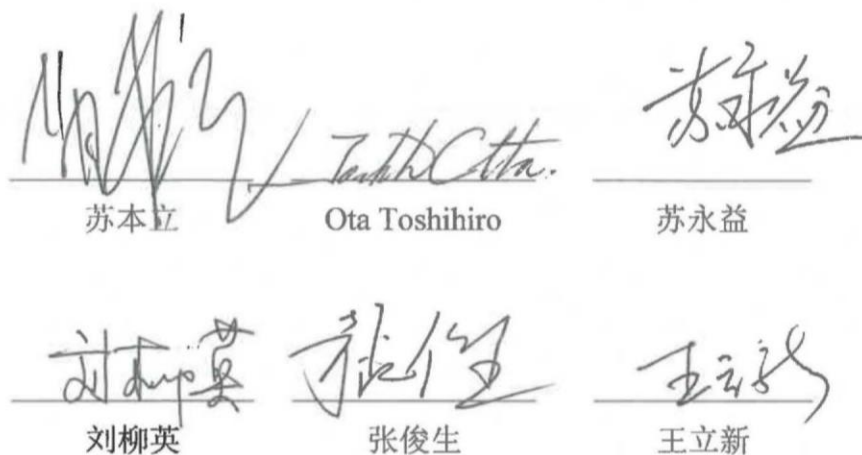 苏本立 Ota Toshihiro 苏永益
刘柳英 张俊生 王立新